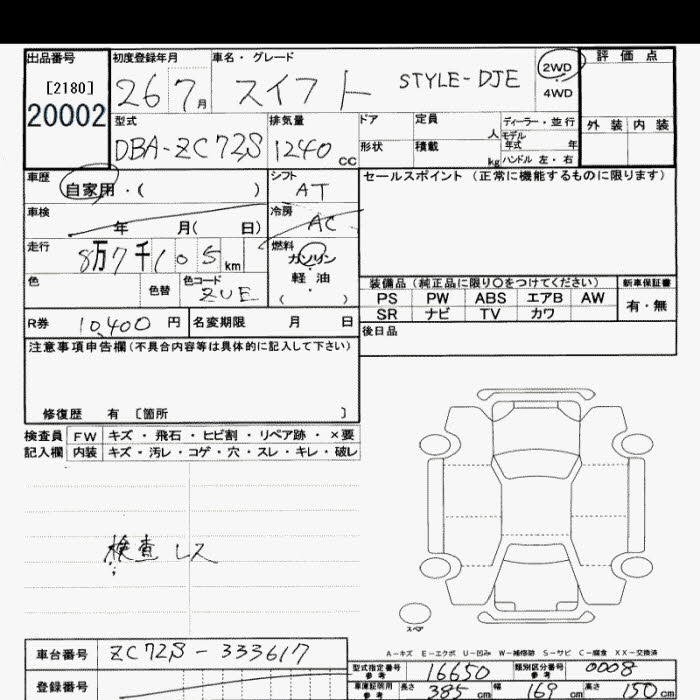 出品番号 初度登録年月 車名・グレード 評価点
[2180] 26 7月 スイフト STYLE-DJE 2WD
20002 4WD
型式 排気量 ドア 定員 ディーラー・並行 外装 内装
DBA-ZC72S 1240 CC 人 モデル年式 年
形状 積載 kg ハンドル 左・右
車歴 自家用・( ) シフト AT セールスポイント (正常に機能するものに限ります)
車検 年 月( 日) 冷房 AC
走行 8万7千105km 燃料 ガソリン
軽油
( )
色 色替 色コード ZUE
装備品(純正品に限り〇をつけてください) 新車保証書
PS PW ABS エアB AW 有・無
SR ナビ TV カワ
R券 10,400 円 名変期限 月 日 後日品
注意事項申告欄(不具合内容等は具体的に記入して下さい)
修復歴 有 〔箇所 〕
検査員 FW キズ・飛石・ヒビ割・リペア跡・×要
記入欄 内装 キズ・汚レ・コゲ・穴・スレ・キレ・破レ
検査レス
スペア
A-キズ E-エクボ U-凹み W-補修跡 S-サビ C-腐食 XX-交換済
車台番号 ZC72S-333617
型式指定番号 参考 16650 類別区分番号 参考 0008
登録番号
車庫証明用 参考 長さ 385 cm 幅 169 cm 高さ 150 cm